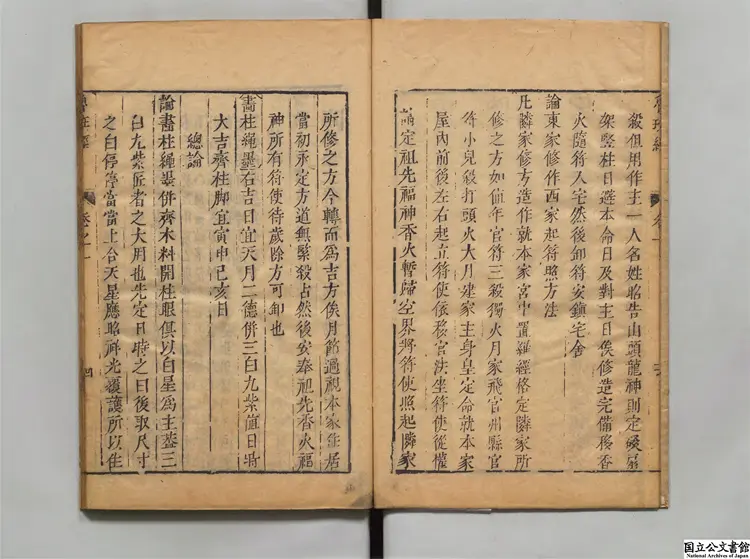 殺但用作主一人名姓昭告山頭龍神則定磉扇
架豎柱日避本命日及對主日俟修造完備移香
火隨符入宅然後卸符安鎮宅舍
論東家修作西家起符照方法
凡隣家修方造作就本家宮中置羅經格定隣家所
修之方如値年官符三殺獨火月家飛宮州縣官
符小兒殺打頭火大月建家主身皇定命就本家
屋內前後左右起立符使依移宮法坐符使從權
請定祖先福神香火暫歸空界將符使照起隣家
魯班經
卷之一
四
所修之方令轉而爲吉方俟月節過視本家住居
當初永定方道無緊殺占然後安奉祖先香火福
神所有符使待歲除方可卸也
畵柱繩墨右吉日宜天月二德併三白九紫值日時
大吉齊柱脚宜寅申巳亥日
總論
論畵柱繩墨併齊木料開柱眼俱以白星爲主葢三
白九紫匠者之大用也先定日時之白後取尺寸
之白停停當當上合天星應昭祥光覆護所以住
国立公文書館
National Archives of Japan